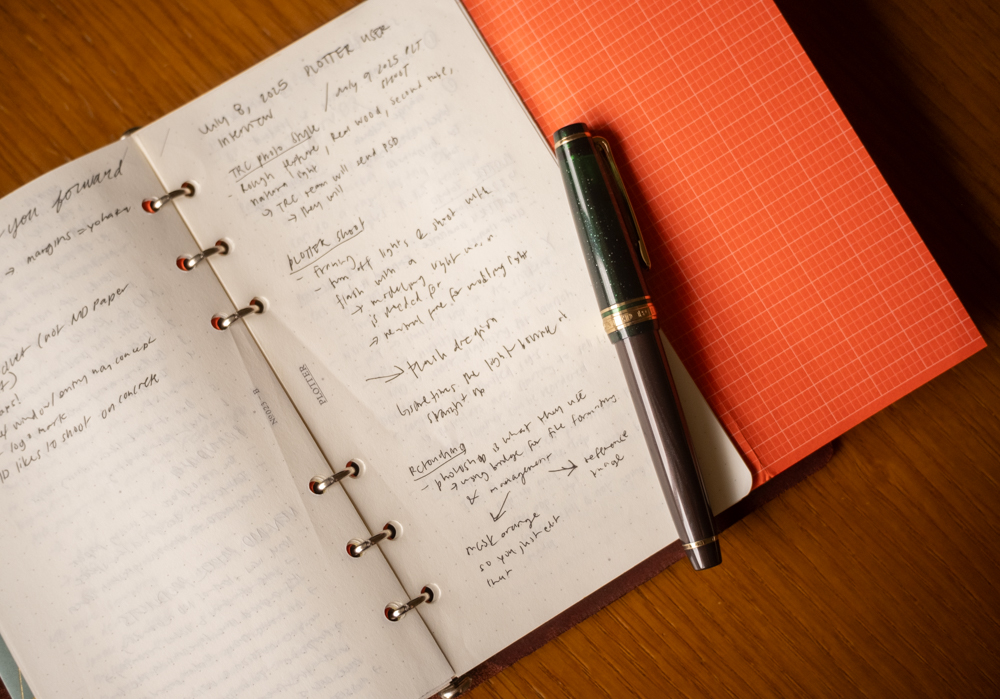 you forward
→ margins = yohaku
(not MD Paper
logo mark
likes to shoot on concrete
PLOTTER
July 8, 2025 PLOTTER USER
Interview / July 9 2025 PLT
shoot
TRC photo style
- Rough texture, Real wood, second rate,
natural light
→ TRC team will send PSD
→ They will
PLOTTER shoot
- Framing
- turn off lights & shoot with
flash with a
→ modeling light
is needed for
→ neutral tone for modeling light
→ Flash direction
Sometimes the light bounce is
straight up
Retouching
- photoshop is what they use
→ using bridge for file formatting
& management → reference
image
mask orange
so you just edit
that